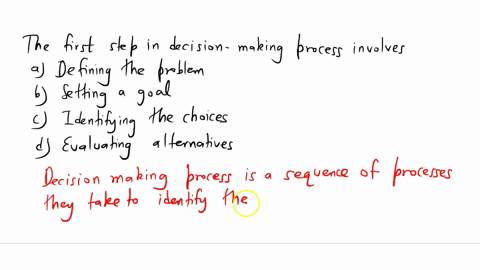 The first step in decision-making process involves
a) Defining the problem
b) Setting a goal
c) Identifying the choices
d) Evaluating alternatives
Decision making process is a sequence of processes
they take to identify the